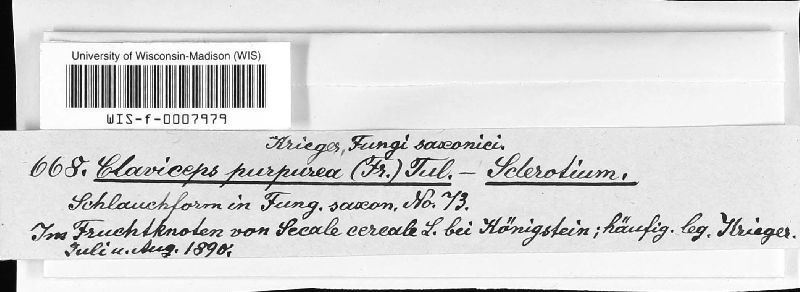 University of Wisconsin-Madison (WIS)
WIS-f-0007979
Krieger, Fungi saxonici.
668. Claviceps purpurea (Fr.) Tul. – Sclerotium.
Schlauchform in Fung. saxon. No. 73.
Im Fruchtknoten von Secale cereale L. bei Königstein; häufig. leg. Krieger.
Juli u. Aug. 1890.